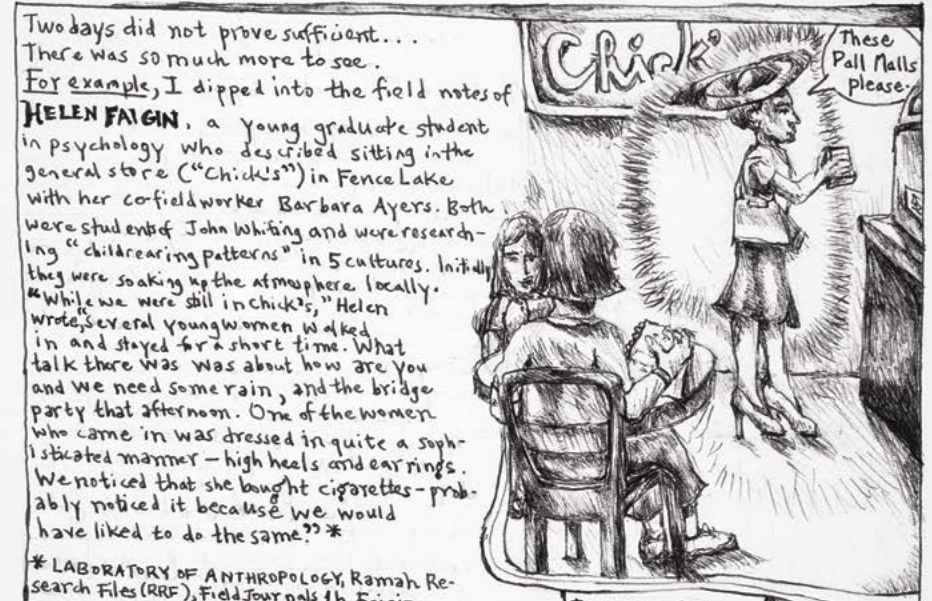 Two days did not prove sufficient...
There was so much more to see.
For example, I dipped into the field notes of
HELEN FAIGIN, a young graduate student
in psychology who described sitting in the
general store ("Chick's") in Fence Lake
with her co-fieldworker Barbara Ayers. Both
were students of John Whiting and were research-
ing "childrearing patterns" in 5 cultures. Initially
they were soaking up the atmosphere locally.
"While we were still in Chick's," Helen
wrote, "several young women walked
in and stayed for a short time. What
talk there was was about how are you
and we need some rain, and the bridge
party that afternoon. One of the women
who came in was dressed in quite a soph-
isticated manner – high heels and earrings.
We noticed that she bought cigarettes – prob-
ably noticed it because we would
have liked to do the same." *
* LABORATORY OF ANTHROPOLOGY, Ramah Re-
search Files (RRF), Field Journals
Chick'
These
Pall Malls
please.